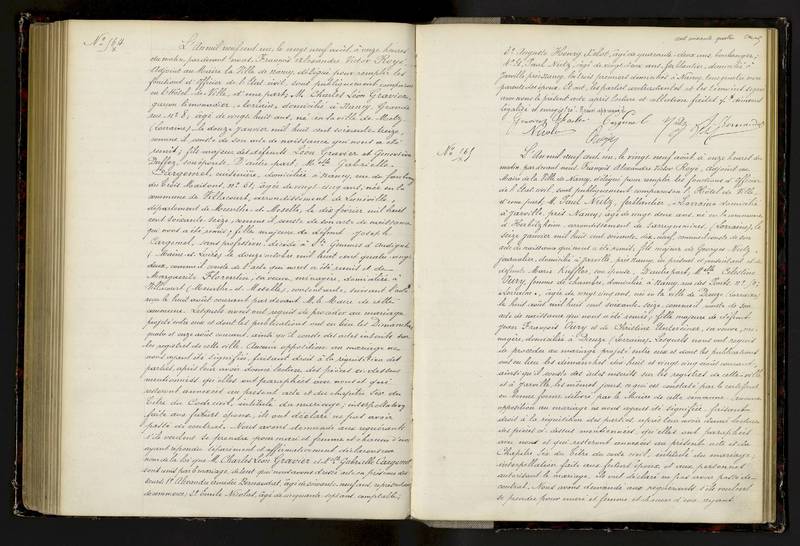 No 164
L'an mil neuf cent un, le vingt neuf août, à onze heures
du matin, pardevant nous François Alexandre Victor Roye,
adjoint au Maire de la Ville de Nancy, délégué pour remplir les
fonctions d'officier de l'état civil, sont publiquement comparus
en l'Hôtel de Ville, d'une part, M. Charles Léon Gravier,
garçon limonadier, domicilié à Nancy, Grande
rue No 8, âgé de vingt huit ans, né en la ville de Metz
(Lorraine), le douze janvier mil huit cent soixante treize,
comme il conste de son acte de naissance qui nous a été
remis; fils majeur des défunts Léon Gravier et Geneviève
son épouse. D'autre part, Mlle Gabrielle
Cargemel, cuisinière, domiciliée à Nancy, rue du faubourg
des trois Maisons, No 61, âgée de vingt cinq ans, née en la
commune de arrondissement de Lunéville
département de Meurthe et Moselle, le dix février mil huit
cent soixante seize, comme il conste de son acte de naissance
qui nous a été remis; fille majeure de défunt Joseph
Cargemel, sans profession, décédé à
(Maine et Loire) le douze octobre mil huit cent quatre vingt
deux, comme il conste de l'acte qui nous a été remis et de
Marguerite Florentin, sa veuve, ménagère, domiciliée à
(Meurthe et Moselle), consentante, suivant l'acte
reçu le huit août courant par devant M. le Maire de cette
commune. Lesquels nous ont requis de procéder au mariage
projeté entre eux et dont les publications ont eu lieu les Dimanches
quatre et onze août courant, ainsi qu'il conste des actes inscrits sur
les registres de cette ville. Aucune opposition au mariage ne
nous ayant été signifiée, faisant droit à la réquisition des
parties, après leur avoir donné lecture des pièces ci-dessus
mentionnées qu'elles ont paraphées avec nous et qui
resteront annexées au présent acte et du chapitre six du
titre du Code civil, intitulé du mariage; interpellation
faite aux futurs époux, ils ont déclaré ne pas avoir
passé de contrat. Nous avons demandé aux requérants
s'ils veulent se prendre pour mari et femme et chacun d'eux
ayant répondu séparément et affirmativement déclarons au
nom de la loi que M. Charles Léon Gravier et Mlle Gabrielle Cargemel
sont unis par mariage, de tout quoi nous avons dressé acte en présence des
sieurs 1o Alexandre Bernardat, âgé de soixante neuf ans, représentant
de commerce; 2o Émile Nicolas, âgé de cinquante sept ans, comptable;
cent soixante quatre
3o Auguste Henry âgé de quarante deux ans, boulanger;
4o Paul Nietz, âgé de vingt deux ans, ferblantier, domicilié à
Jarville près Nancy, les trois premiers domiciliés à Nancy, tous quatre non
parents des époux. Et ont, les parties contractantes et les témoins signé
avec nous le présent acte après lecture et
No 165
L'an mil neuf cent un, le vingt neuf août à onze heures du
matin, pardevant nous François Alexandre Victor Roye, adjoint au
Maire de la Ville de Nancy, délégué pour remplir les fonctions d'officier
de l'état civil, sont publiquement comparus en l'Hôtel de Ville,
d'une part, M. Paul Nietz, ferblantier, domicilié
à Jarville, près Nancy, âgé de vingt deux ans, né en la commune
d'Herbitzheim, arrondissement de Sarreguemines (Lorraine), le
seize janvier mil huit cent soixante dix neuf, comme il conste de son
acte de naissance qui nous a été remis; fils majeur de Georges Nietz
journalier, domicilié à Jarville, près Nancy, ici présent et consentant et de
défunte Marie son épouse. D'autre part, Mlle Célestine
Very, femme de chambre, domiciliée à Nancy, rue des
âgée de vingt cinq ans, née en la ville de Dieuze (Lorraine)
le huit août mil huit cent soixante seize, comme il conste de son
acte de naissance qui nous a été remis; fille majeure de défunt
Jean François Very et de Christine sa veuve, mé-
nagère, domiciliée à Dieuze (Lorraine). Lesquels nous ont requis
de procéder au mariage projeté entre eux et dont les publications
ont eu lieu les dimanches dix huit et vingt cinq août courant,
ainsi qu'il conste des actes inscrits sur les registres de cette ville
et à Jarville les mêmes jours, ce qui est constaté par le certificat
en bonne forme délivré par le Maire de cette commune. Aucune
opposition au mariage ne nous ayant été signifiée, faisant
droit à la réquisition des parties, après leur avoir donné lecture
des pièces ci-dessus mentionnées, qu'elles ont paraphées
avec nous et qui resteront annexées au présent acte et du
Chapitre six du titre du code civil, intitulé du mariage;
interpellation faite aux futurs époux, et aux personnes
autorisant le mariage, ils ont déclaré ne pas avoir passé de
contrat. Nous avons demandé aux requérants s'ils veulent
se prendre pour mari et femme et chacun d'eux ayant